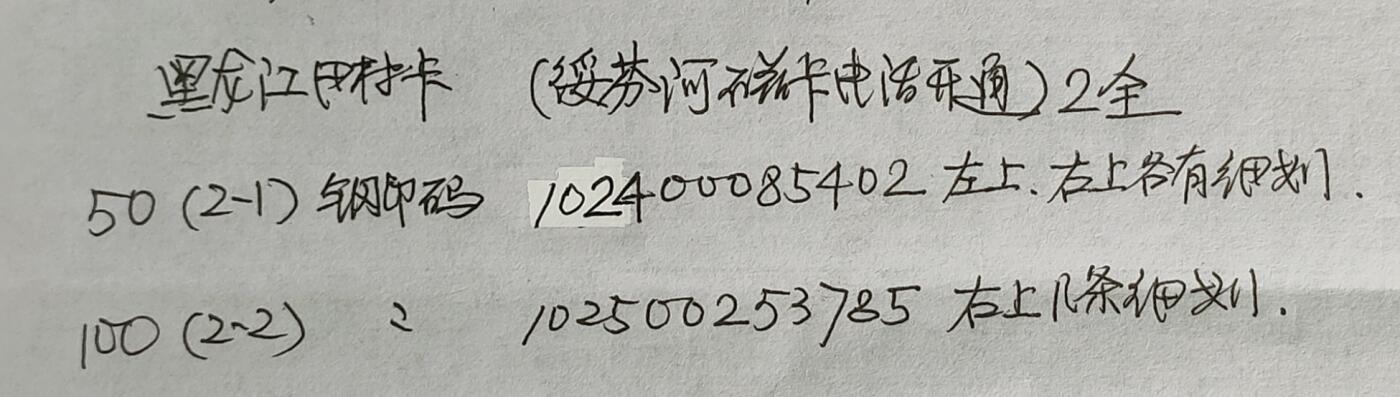 黑龙江田村卡 (绥芬河磁卡电话开通)2全
50(2-1)钢印码 102400085402 左上、右上各有细划.
100(2-2) 〃 102500253785 右上几条细划.